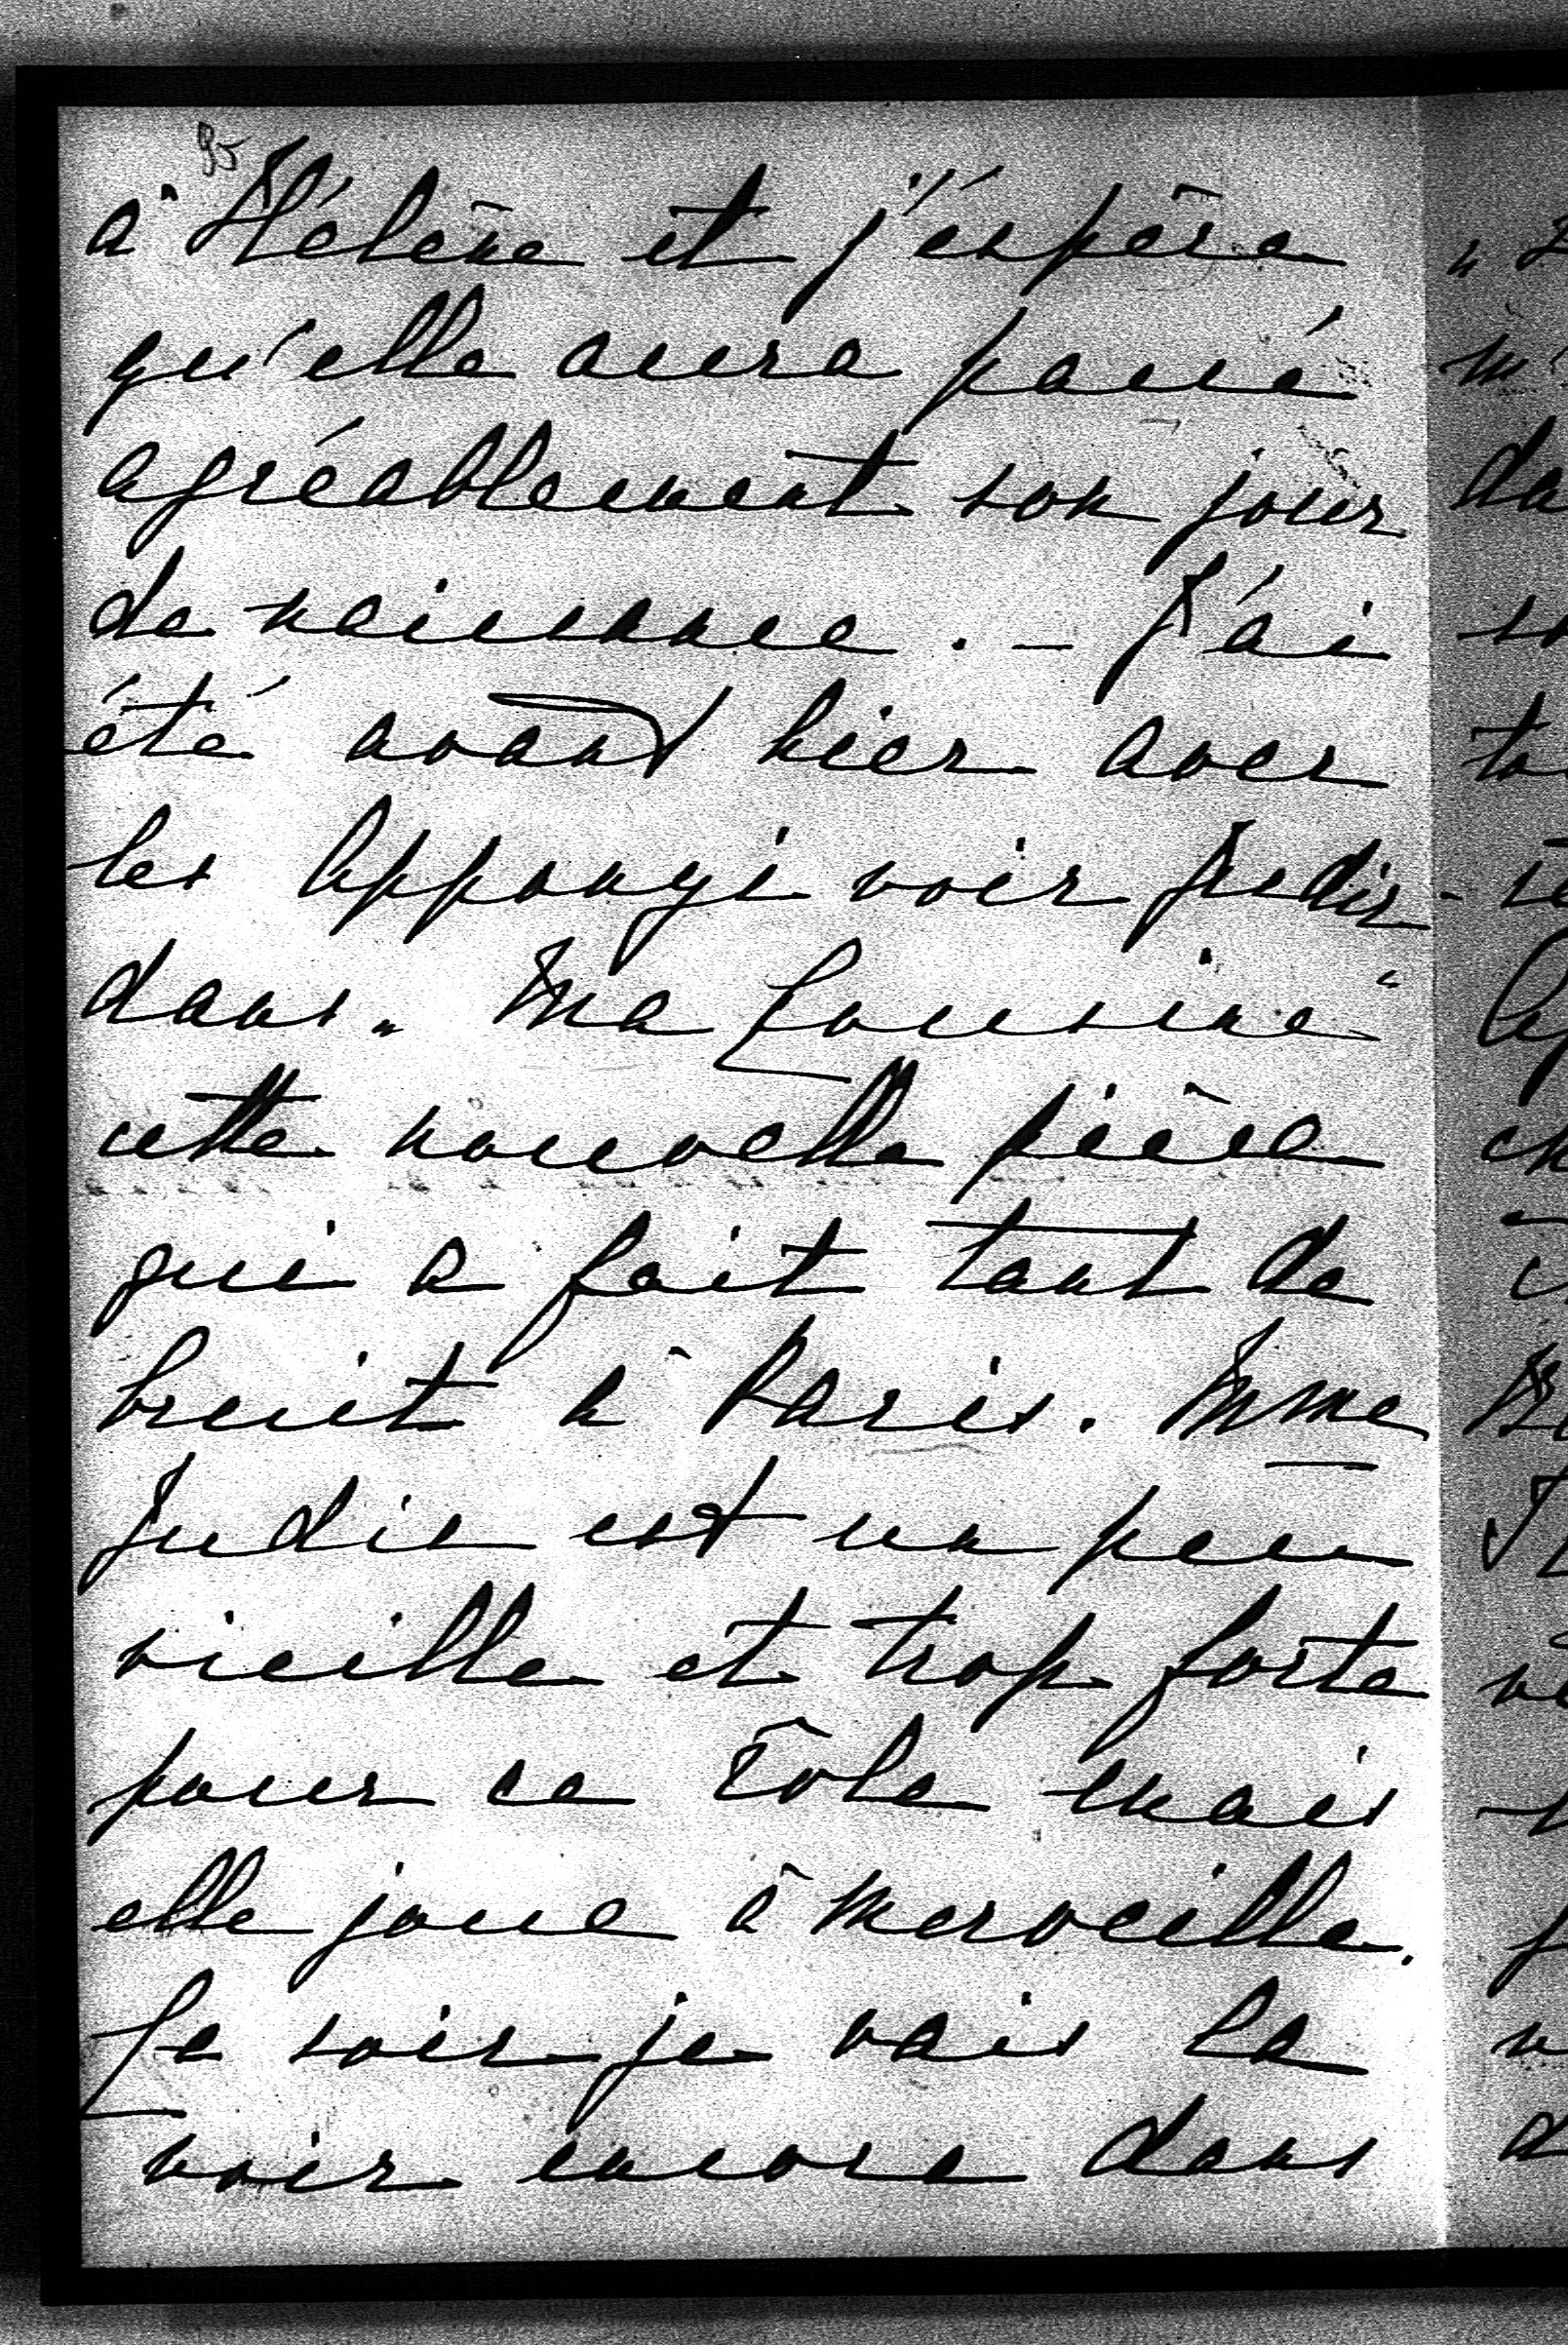 95
à Hélène et j'éspère
qu'elle aura passé
agréablement son jour
de naissance. – J'ai
été avant hier avec
les Apponyi voir Judic
dans „Ma Cousine“
cette nouvelle pièce
qui a fait tant de
bruit à Paris. Mme
Judic est un peu
vieille et trop forte
pour ce rôle mais
elle joue à merveille.
Ce soir je vais la
voir encore dans